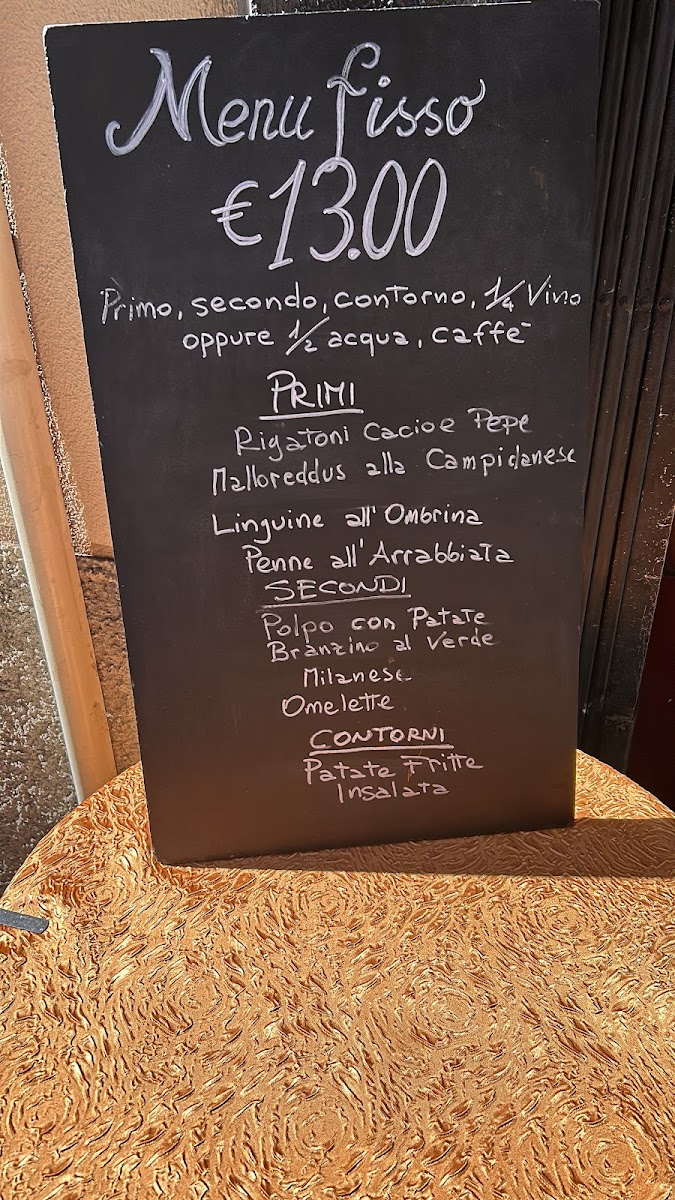 Menu fisso
€13.00
Primo, secondo, contorno, 1/4 Vino
oppure 1/2 acqua, caffè
PRIMI
Rigatoni Cacio e Pepe
Malloreddus alla Campidanese
Linguine all'Ombrina
Penne all'Arrabbiata
SECONDI
Polpo con Patate
Branzino al Verde
Milanese
Omelette
CONTORNI
Patate Fritte
Insalata